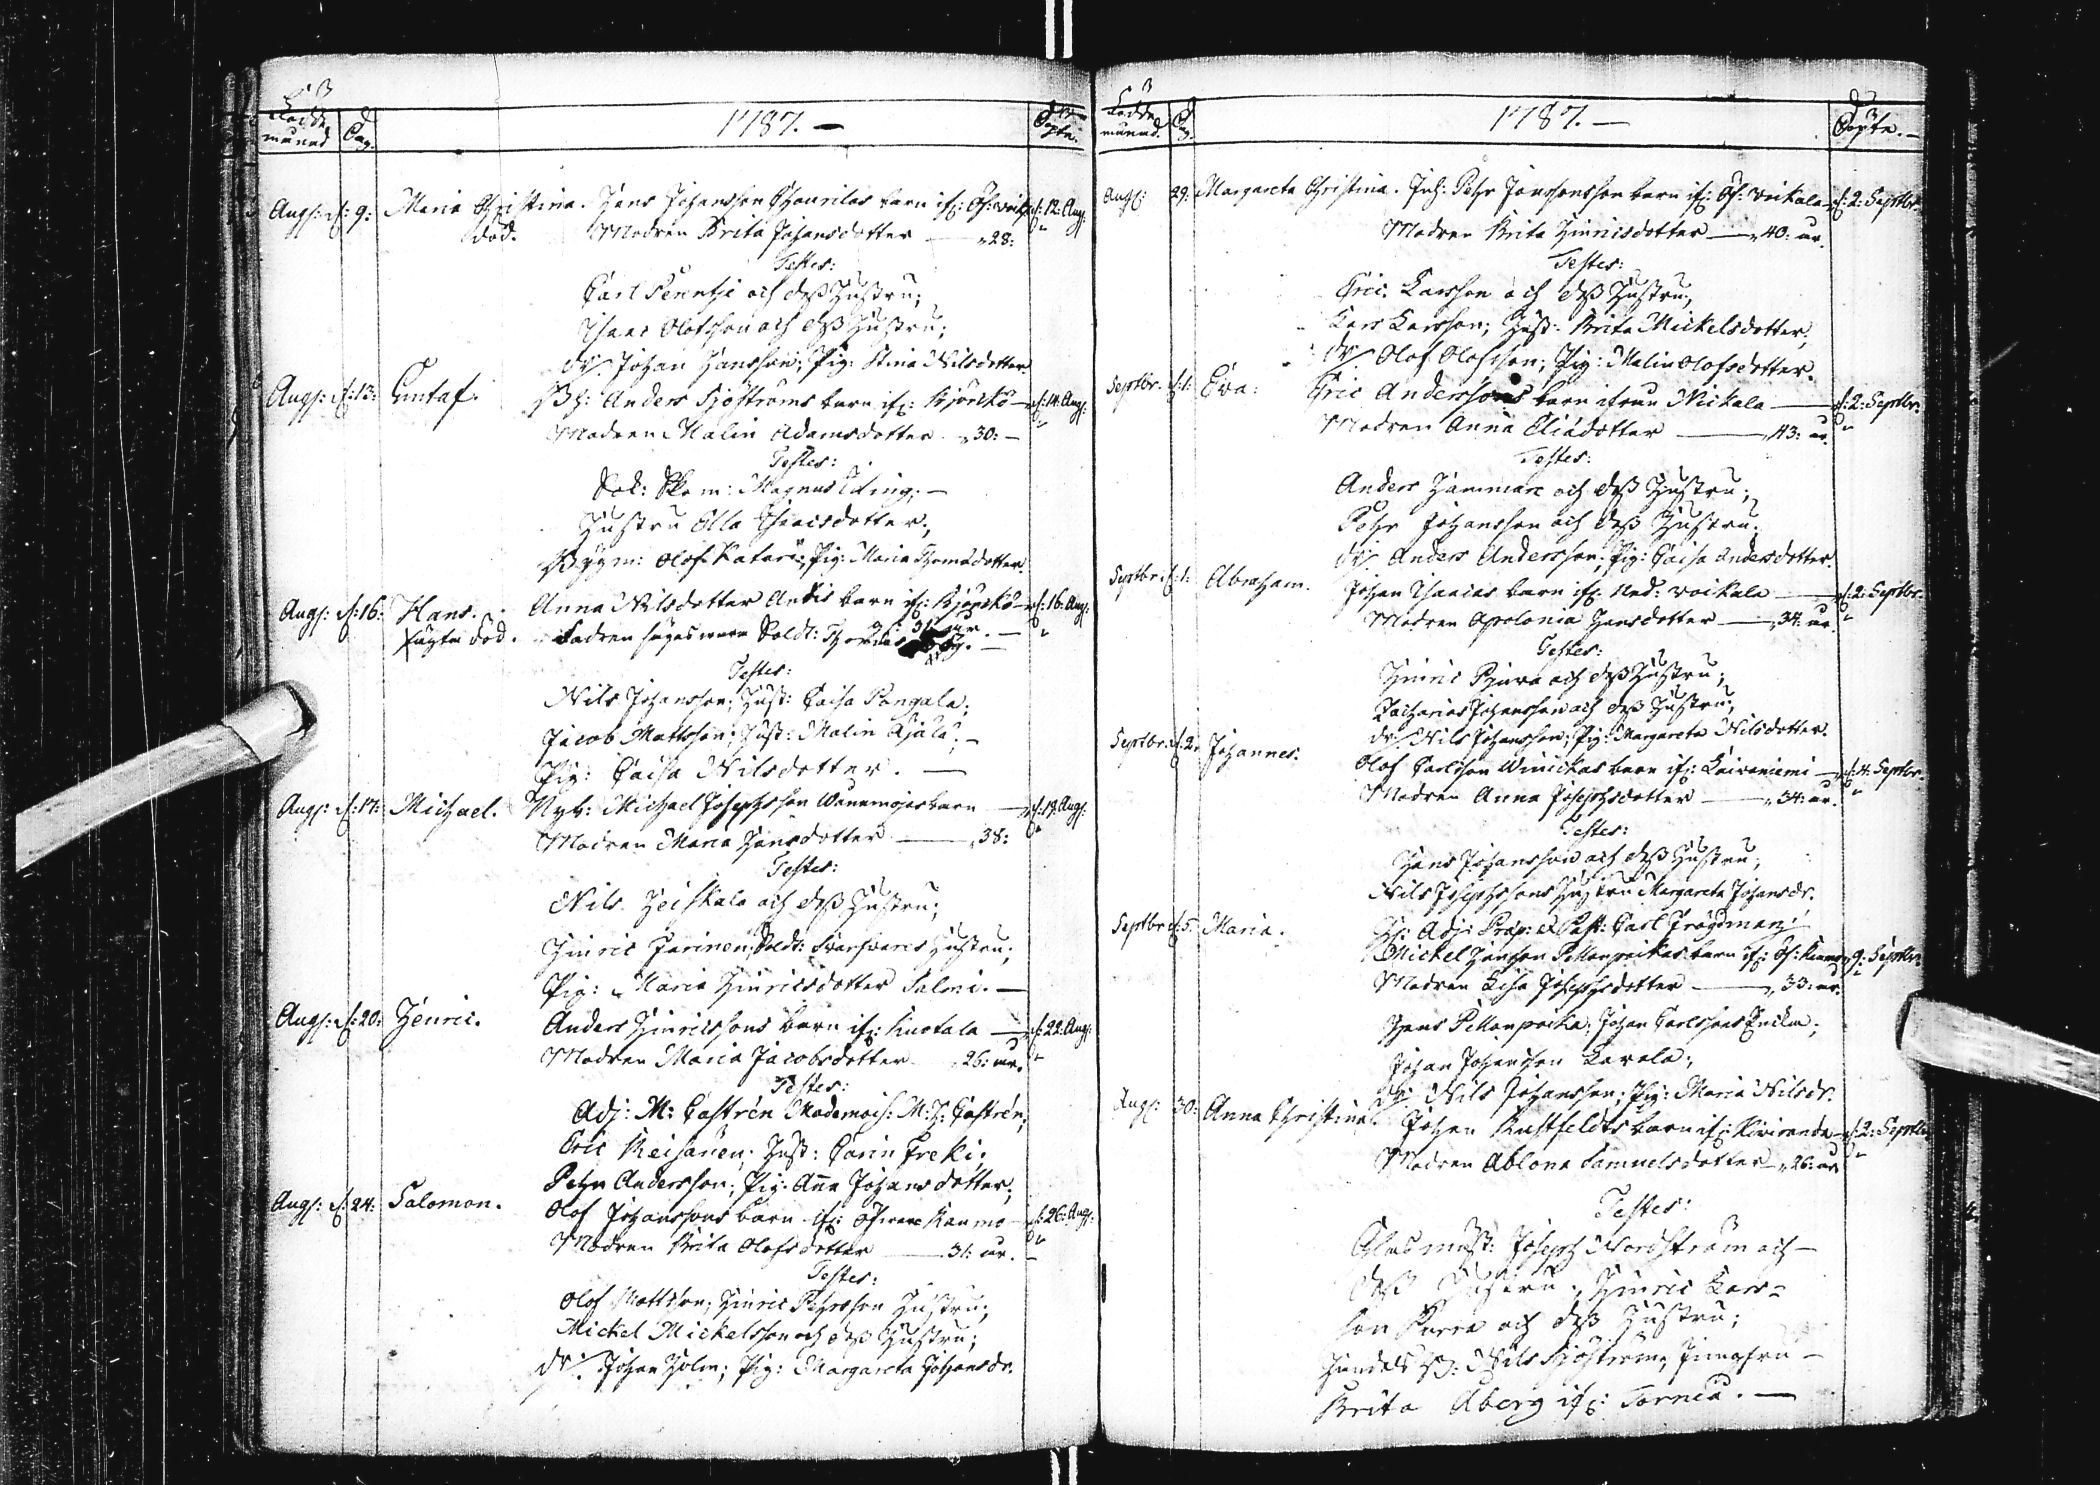 Födde
månad Dag. 1787. — Döpte.
Aug: d: 9: Maria Christina. Hans Johansson Thaurilas barn ifr: Öf: Voik d: 12: Aug:
död. Modren Brita Johansdotter — 28:
Testes:
Carl Penntzi och dess Hustru;
Isaac Olofsson och dess Hustru;
Dr: Johan Hansson; Pig: Stina Nilsdotter
Aug: d: 13: Gustaf. Anders Sjöströms barn ifr: Björckö — d: 14: Aug:
Modren Malin Adamsdotter — 30: —
Testes:
Sok: Skom: Magnus Uding; —
Hustru Ella Thomsdotter;
Olof Katari; Pig: Maria Thomsdotter.
Aug: d: 16: Hans. Anna Nilsdotter barn ifr: Björckö — d: 16: Aug:
död. Fadren säges wara Soldt:
Testes:
Nils Johansson; Hust: Caisa Pangala;
Jacob Mattsson; Hust: Malin Kjälä; —
Pig: Caisa Nilsdotter. —
Aug: d: 17: Michael. Nyb: Michael Josephsson Wanamojas barn — d: 19: Aug:
Modren Maria Hansdotter — 38:
Testes:
Nils Heiskala och dess Hustru;
Hinric Farinen; Soldt: Hustru;
Pig: Maria Hinricsdotter Salmi. —
Aug: d: 20: Henric. Anders Hinricssons barn ifr: Knotala — d: 22: Aug:
Modren Maria Jacobsdotter 26: år.
Testes:
Adj: M: Castrén Mademois: M: H: Castrén;
Eric Keisarien; Hust: Carin Freki;
Petyr Andersson; Pig: Anna Johansdotter;
Aug: d: 24: Salomon. Olof Johanssons barn ifr: Öfwre Raumo — d: 26: Aug:
Modren Brita Olofsdotter — 31: år. —
Testes:
Olof Mattsson; Hinric Pehrsson Hustru;
Mickel Mickelsson och dess Hustru;
Dr: Johan Holm; Pig: Margareta Johansdr.
Födde
månad. Dag. 1787. — Döpte. —
Aug: 29. Margareta Christina. Inh: Pehr Jönsonsson barn ifr: Öf: Voikala — d: 2: Septbr.
Modren Brita Hinricsdotter — 40: år.
Testes:
Eric Larsson och dess Hustru;
Lars Larsson; Hust: Brita Mickelsdotter;
Dr: Olof Olofsson; Pig: Malin Olofsdotter.
Septbr. d: 1: Eva: Eric Anderssons barn ifrån Nickala — d: 2: Septbr:
Modren Anna Eliædotter — 43: år.
Testes:
Anders Hammare och dess Hustru;
Pehr Johansson och dess Hustru;
Dr: Anders Andersson; Pig: Caisa Andersdotter.
Septbr: d: 1: Abraham. Johan Isaacas barn ifr: Ned: Voikala — d: 2: Septbr:
Modren Apolonia Hansdotter — 34. år.
Testes:
Hinric Pjura och dess Hustru;
Zacharias Johansson och dess Hustru;
Dr: Nils Johansson; Pig: Margareta Nilsdotter.
Septbr. d: 2: Johannes. Olof Carlsson Winickas barn ifr: Laivaniemi — d: 4: Septbr.
Modren Anna Josephsdotter — 34: år.
Testes:
Hans Johansson och dess Hustru;
Nils Josephssons Hustru Margareta Johansdr.
Adj: Præp: et Past: Carl Frögdman;
Septbr d: 5. Maria. Mickel Jönsson Pellonpoikas barn ifr: Öf: d: 9: Septbr.
Modren Lisa Josephsdotter — 33: år.
Hans Pellonpoika; Johan Carlssons Enka;
Johan Johansson Lavola;
Dr: Nils Johansson; Pig: Maria Nilsdr.
Aug: 30: Anna Christina. Johan Rustfeldts barn ifr: Kiviranda — d: 2: Septbr
Modren Ablona Samuelsdotter — 26: år
Testes:
Glasmest: Joseph Nordström och —
dess Hustru; Hinric Lars-
son Purra och dess Hustru;
Handels B: Nils Sjöström; Jungfru —
Brita Åberg ifr: Torneå. —